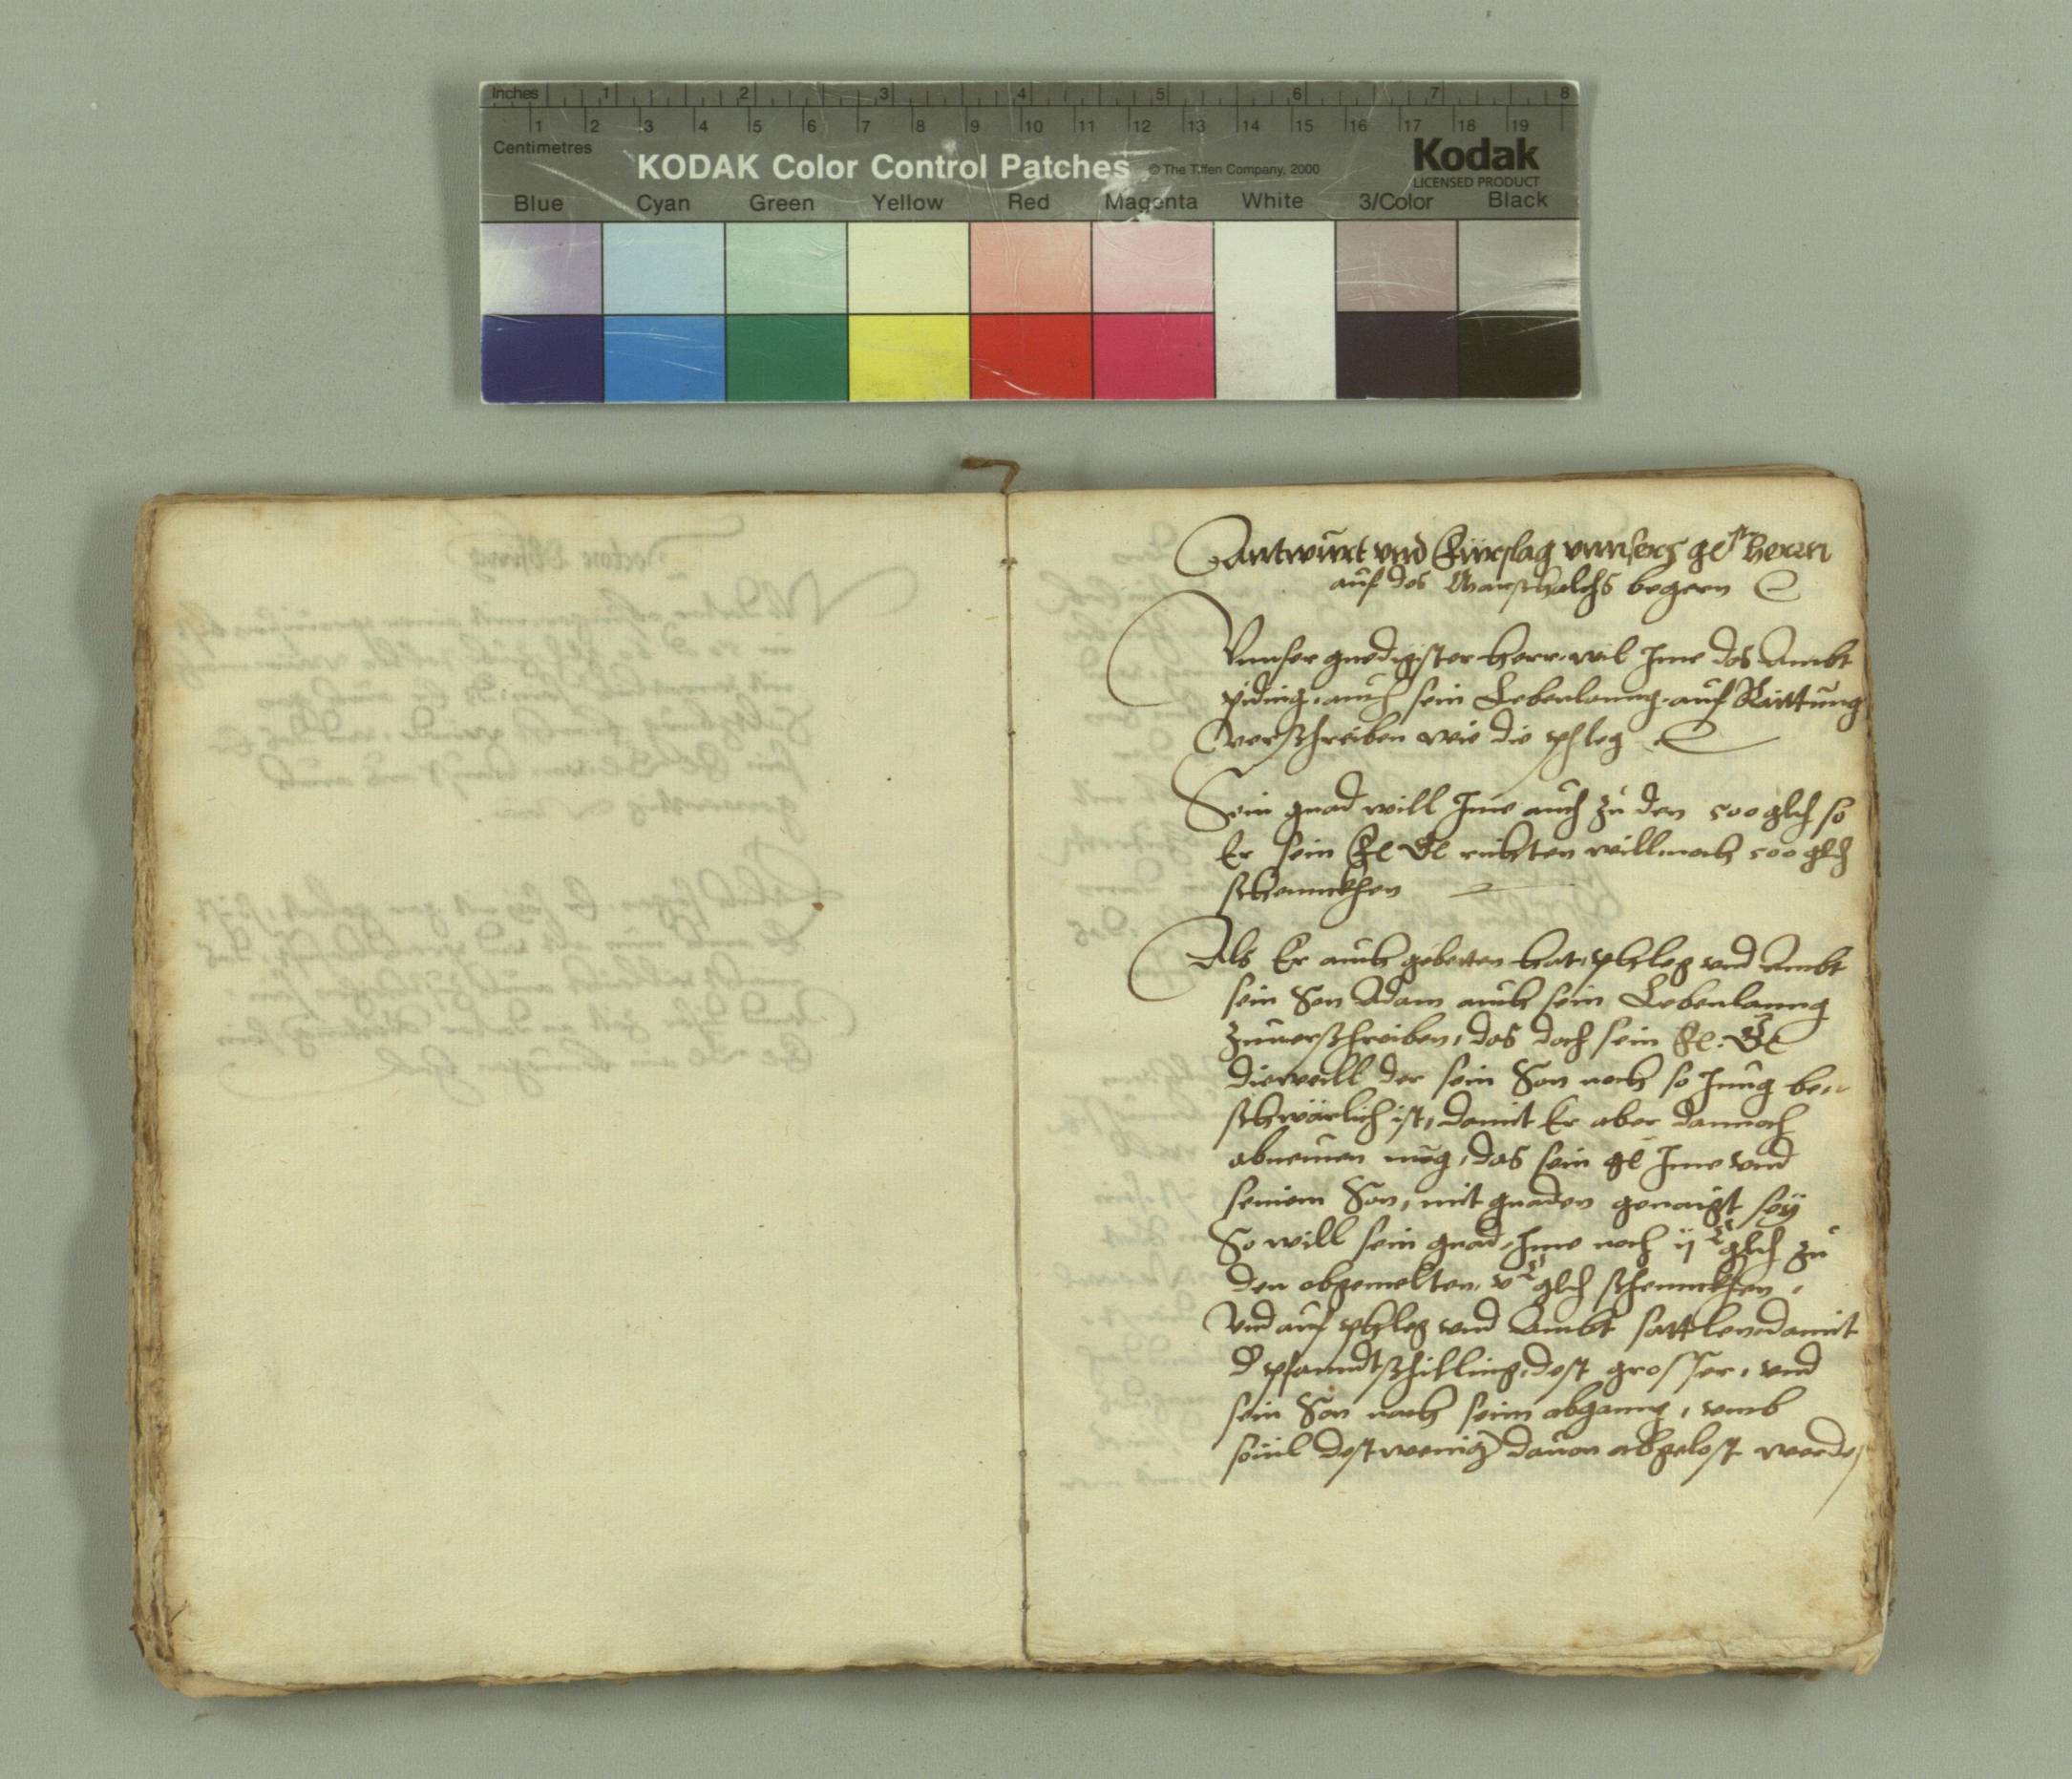 Inches 1 2 3 4 5 6 7 8
1 2 3 4 5 6 7 8 9 10 11 12 13 14 15 16 17 18 19
Centimetres
KODAK Color Control Patches © The Tiffen Company, 2000 Kodak
LICENSED PRODUCT
Blue Cyan Green Yellow Red Magenta White 3/Color Black
Antwurt vnd Fürslag vnnsers gstn herrn
auf des Marschalchs begern
Vnnser gnedigister herr, wil Ime das Ambt
piding, auch sein Lebenlanng, auf Raittung
verschreiben wie die phleg
Sein gnad will Ime auch zu den 500 glch so
Er sein richten will noch 500 glch
schennckhen
Als Er auch gebetten hat, phleg vnd Ambt
sein Son Adam auch sein Lebenlanng
zuuerschreiben, das doch sein
dieweill der sein Son noch so Jung be„
schwärlich ist, damit Er aber dannoch
abnemen mug, das sein Ime vnd
seinem Son, mit gnaden genaigt sey
So will sein gnad, Ime noch ij C glch zu
den obgemelten, v C glch schennckhen,
Vnd auf phleg vnd Ambt sattlen damit
d pfanndtschilling, dest grosser, vnd
sein Son nach seim abganng, vmb
souil dest wenig dauon abgelost werde